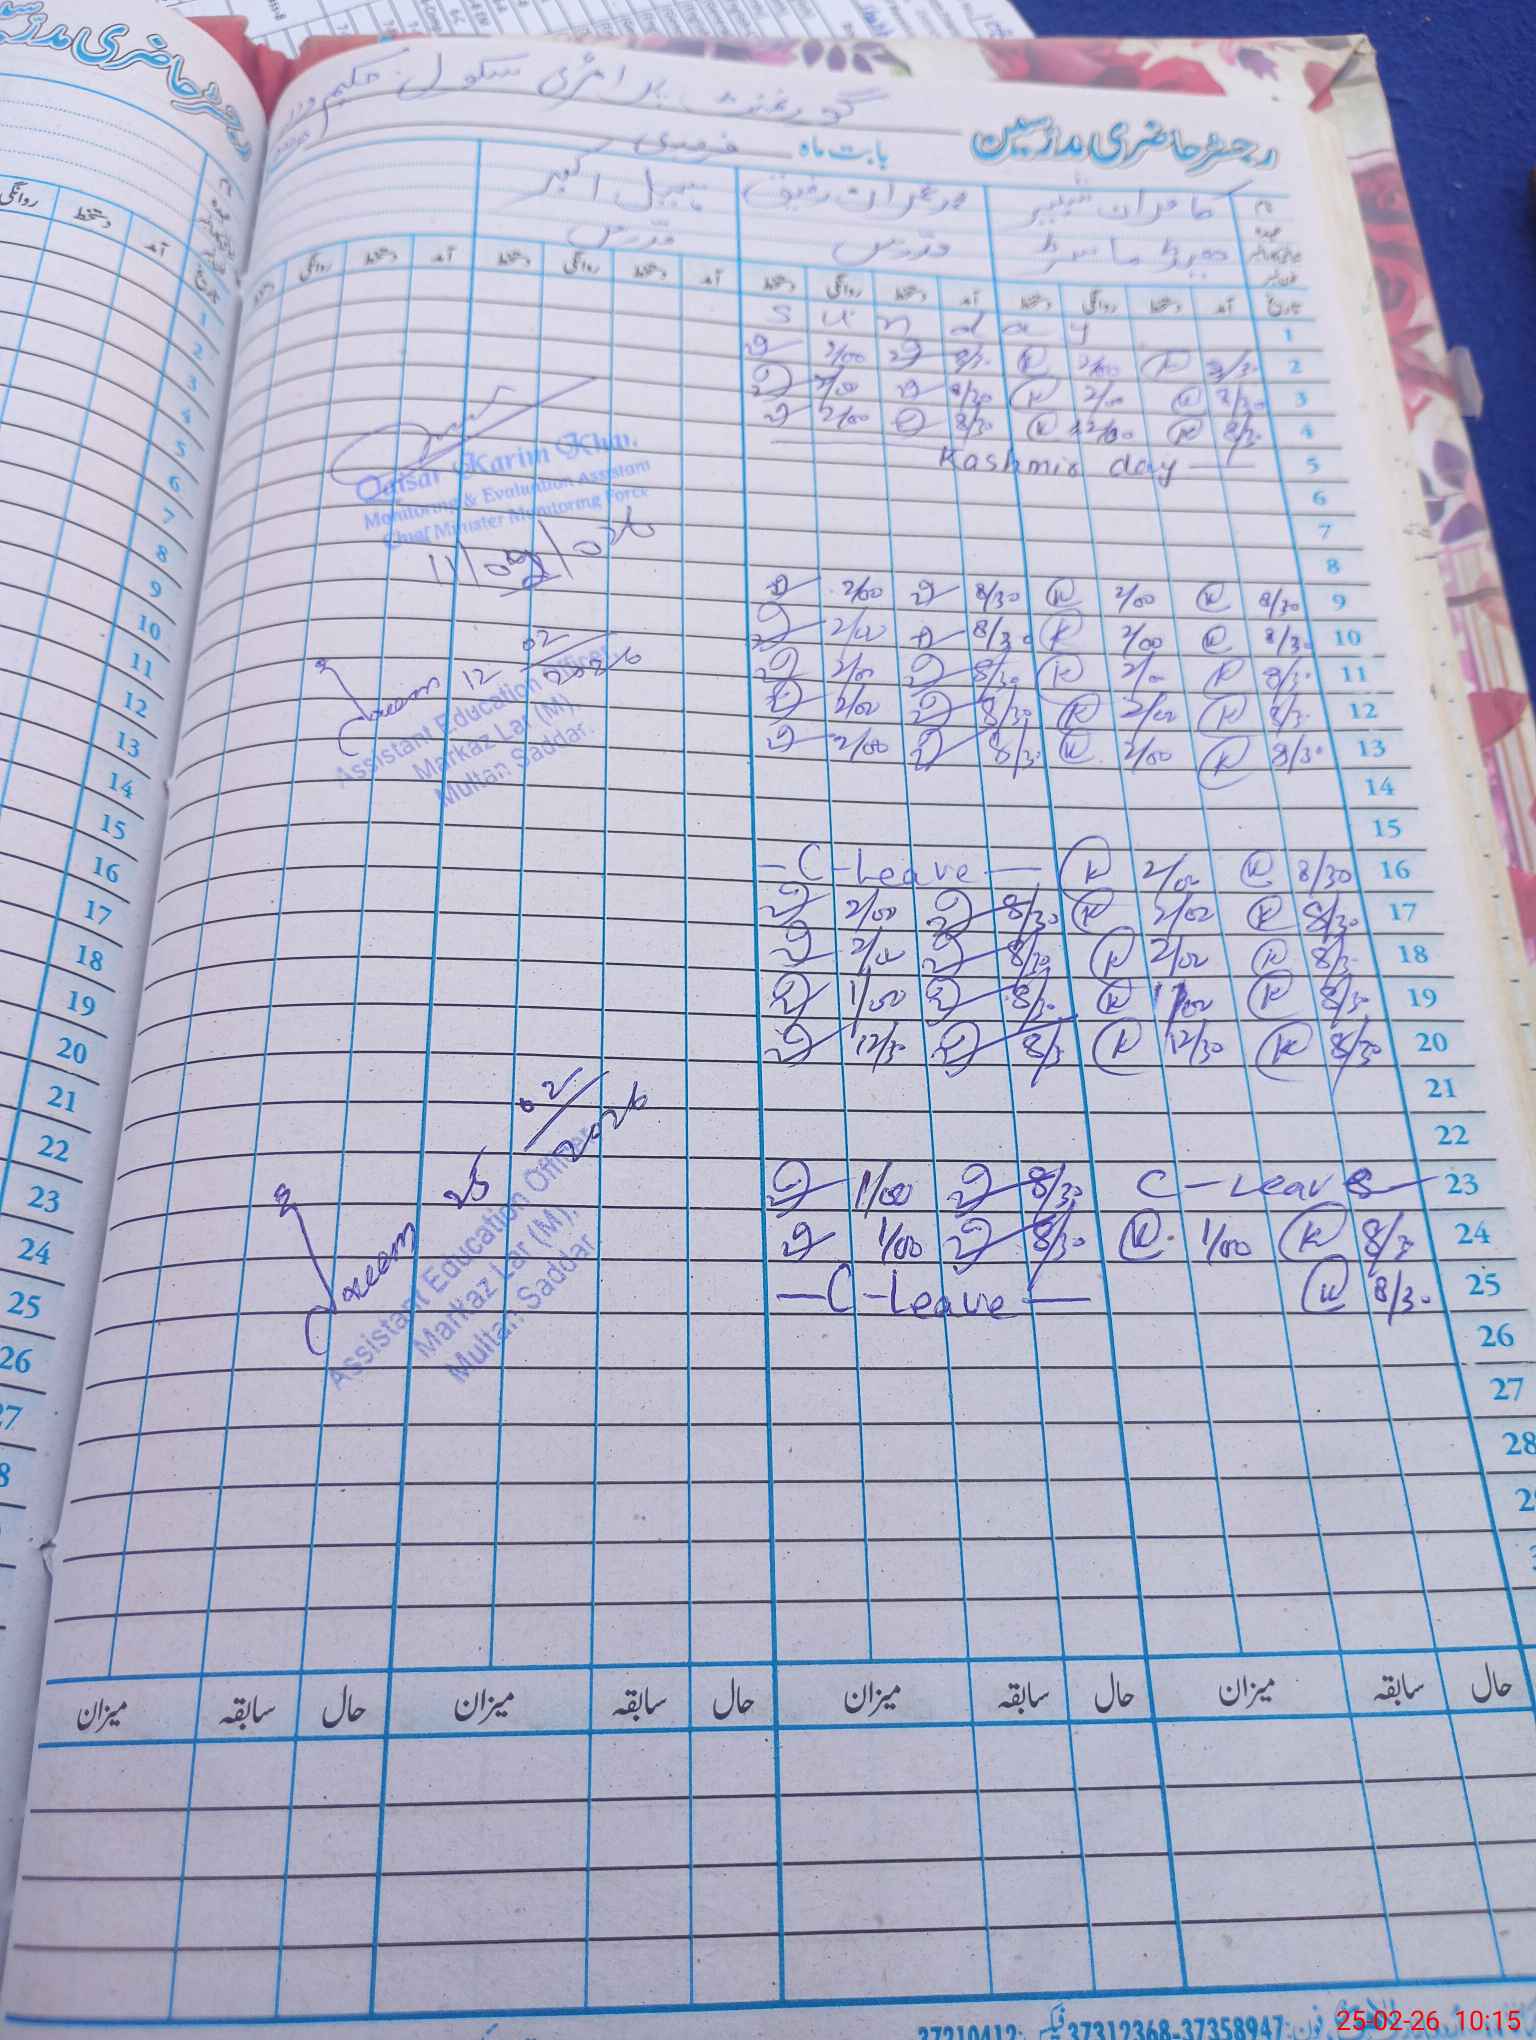 گورنمنٹ پرائمری سکول حکیم
رجسٹر حاضری مدارسین
بابت ماہ فروری
کامران شبیر محمد عمران رفیق نبیل اکبر
ہیڈ ماسٹر مدرس مدرس
تاریخ آمد دستخط روانگی دستخط آمد دستخط روانگی دستخط آمد دستخط روانگی دستخط آمد دستخط روانگی
1 Sunday
2 8/30 K 2/00 K 8/30 2/00
3 8/30 K 2/00 K 8/30 2/00
4 8/30 K 2/00 K 8/30 2/00
5 Kashmir day
6
7
8
9 8/30 K 2/00 K 8/30 2/00
10 8/30 K 2/00 K 8/30 2/00
11 8/30 K 2/00 K 8/30 2/00
12 8/30 K 2/00 K 8/30 2/00
13 8/30 K 2/00 K 8/30 2/00
14
15
16 8/30 K 2/00 K - C - Leave -
17 8/30 K 2/00 K 8/30 2/00
18 8/30 K 2/00 K 8/30 2/00
19 8/30 K 1/00 K 8/30 1/00
20 8/30 K 12/30 K 8/3 12/30
21
22
23 C - Leave 8/30 1/00
24 8/30 K 1/00 K 8/30 1/00
25 8/30 K - C - Leave -
26
27
28
Qaisar Karim Khan
Monitoring & Evaluation Assistant
Chief Minister Monitoring Force
11/02/026
12 02/2026
Assistant Education Officer
Markaz Lar (M),
Multan Saddar.
25 02/2026
Assistant Education Officer
Markaz Lar (M),
Multan Saddar.
حال سابقہ میزان حال سابقہ میزان حال سابقہ میزان حال سابقہ میزان
فون: 37358947-37312368 فیکس: 37210412
رجسٹر حاضری مدارسین
آمد دستخط روانگی
1
2
3
4
5
6
7
8
9
10
11
12
13
14
15
16
17
18
19
20
21
22
23
24
25
26
27
8
25-02-26 10:15